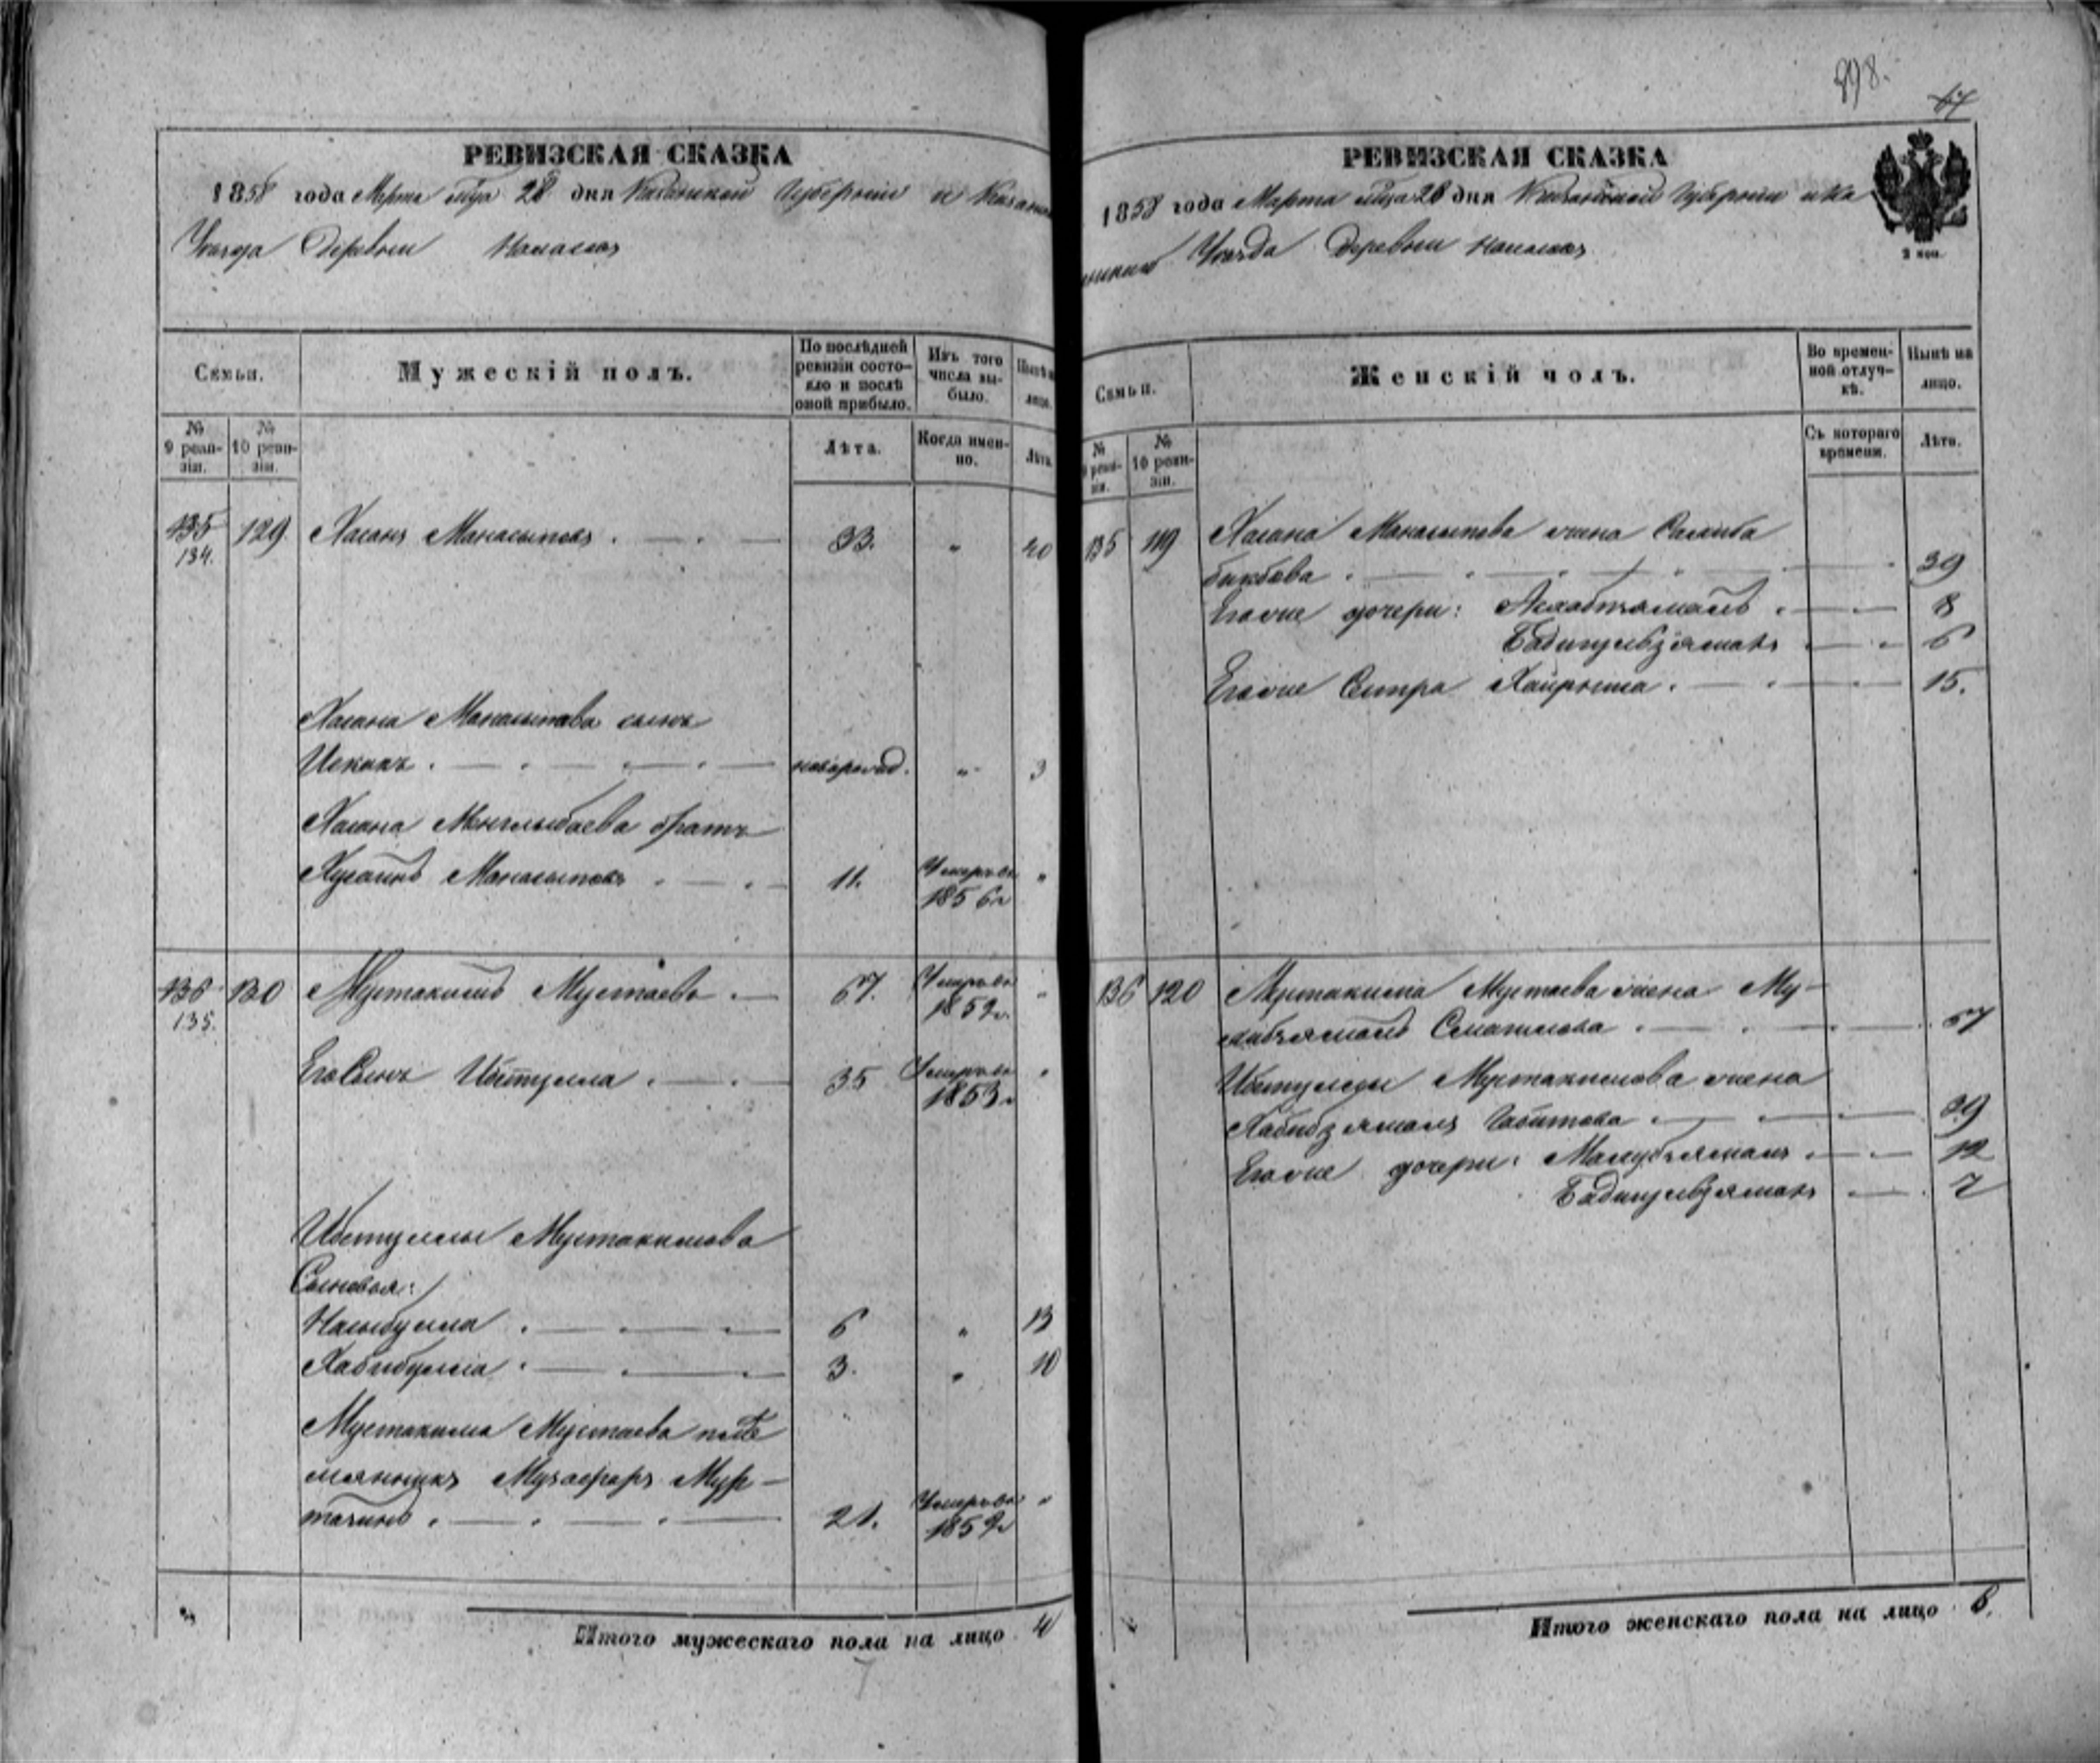 РЕВИЗСКАЯ СКАЗКА
1858 года Марта м̃ца 28 дня Казанской Губернии и Казанска
Уѣзда Деревни
Семьи.
Мужескій полъ.
По послѣдней ревизіи состояло и послѣ оной прибыло.
Изъ того числа выбыло.
Нынѣ на лицо.
№ 9 ревизіи.
№ 10 ревизіи.
Лѣта.
Когда именно.
Лѣта
135 129 Хасанъ Манасыповъ . — . — 33. " 40
134.
Хасана Манасыпова сынъ
Исхакъ . — . — . — . — новорожд. " 3
Хасана братъ
Хусаинъ Манасыповъ . — . — 11. Умеръ въ "
1856г
136 130 Мустакимъ Мустаевъ . — 67. Умеръ въ "
135. 1852г.
Его Сынъ Ибетулла . — . — 35 Умеръ въ "
1853г
Ибетуллы Мустакимова
Сыновья:
Насыбулла . — . — . — 6 " 13
Хабибулла . — . — . — 3. " 10
Мустакима Мустаева пле
мянникъ Музафаръ Мур-
тазинъ . — . — . — 21. Умеръ въ "
1852г
Итого мужескаго пола на лицо 4
7
898.
67
РЕВИЗСКАЯ СКАЗКА
1858 года Марта м̃ца 28 дня Казанской Губерніи и Ка
занскаго Уѣзда Деревни
2 коп.
Семьи.
Женскій полъ.
Во временной отлучкѣ.
Нынѣ на лицо.
№ 9 ревизіи.
№ 10 ревизіи.
Съ котораго времени.
Лѣта.
135 119 Хасана Манасыпова жена
. — . — . — 39
Его же дочери: . — . — 8
Бадигулвзямалъ . — . — 6
Его же Сестра . — . — 15.
136 120 Мустакима Мустаева жена Му-
. — . — 57
Ибетуллы Мустакимова жена
Хабибзямалъ Габитова . — . — 39
Его же дочери: . — . — 12
Бадигулвзямалъ . — . 7
Итого женскаго пола на лицо 8.